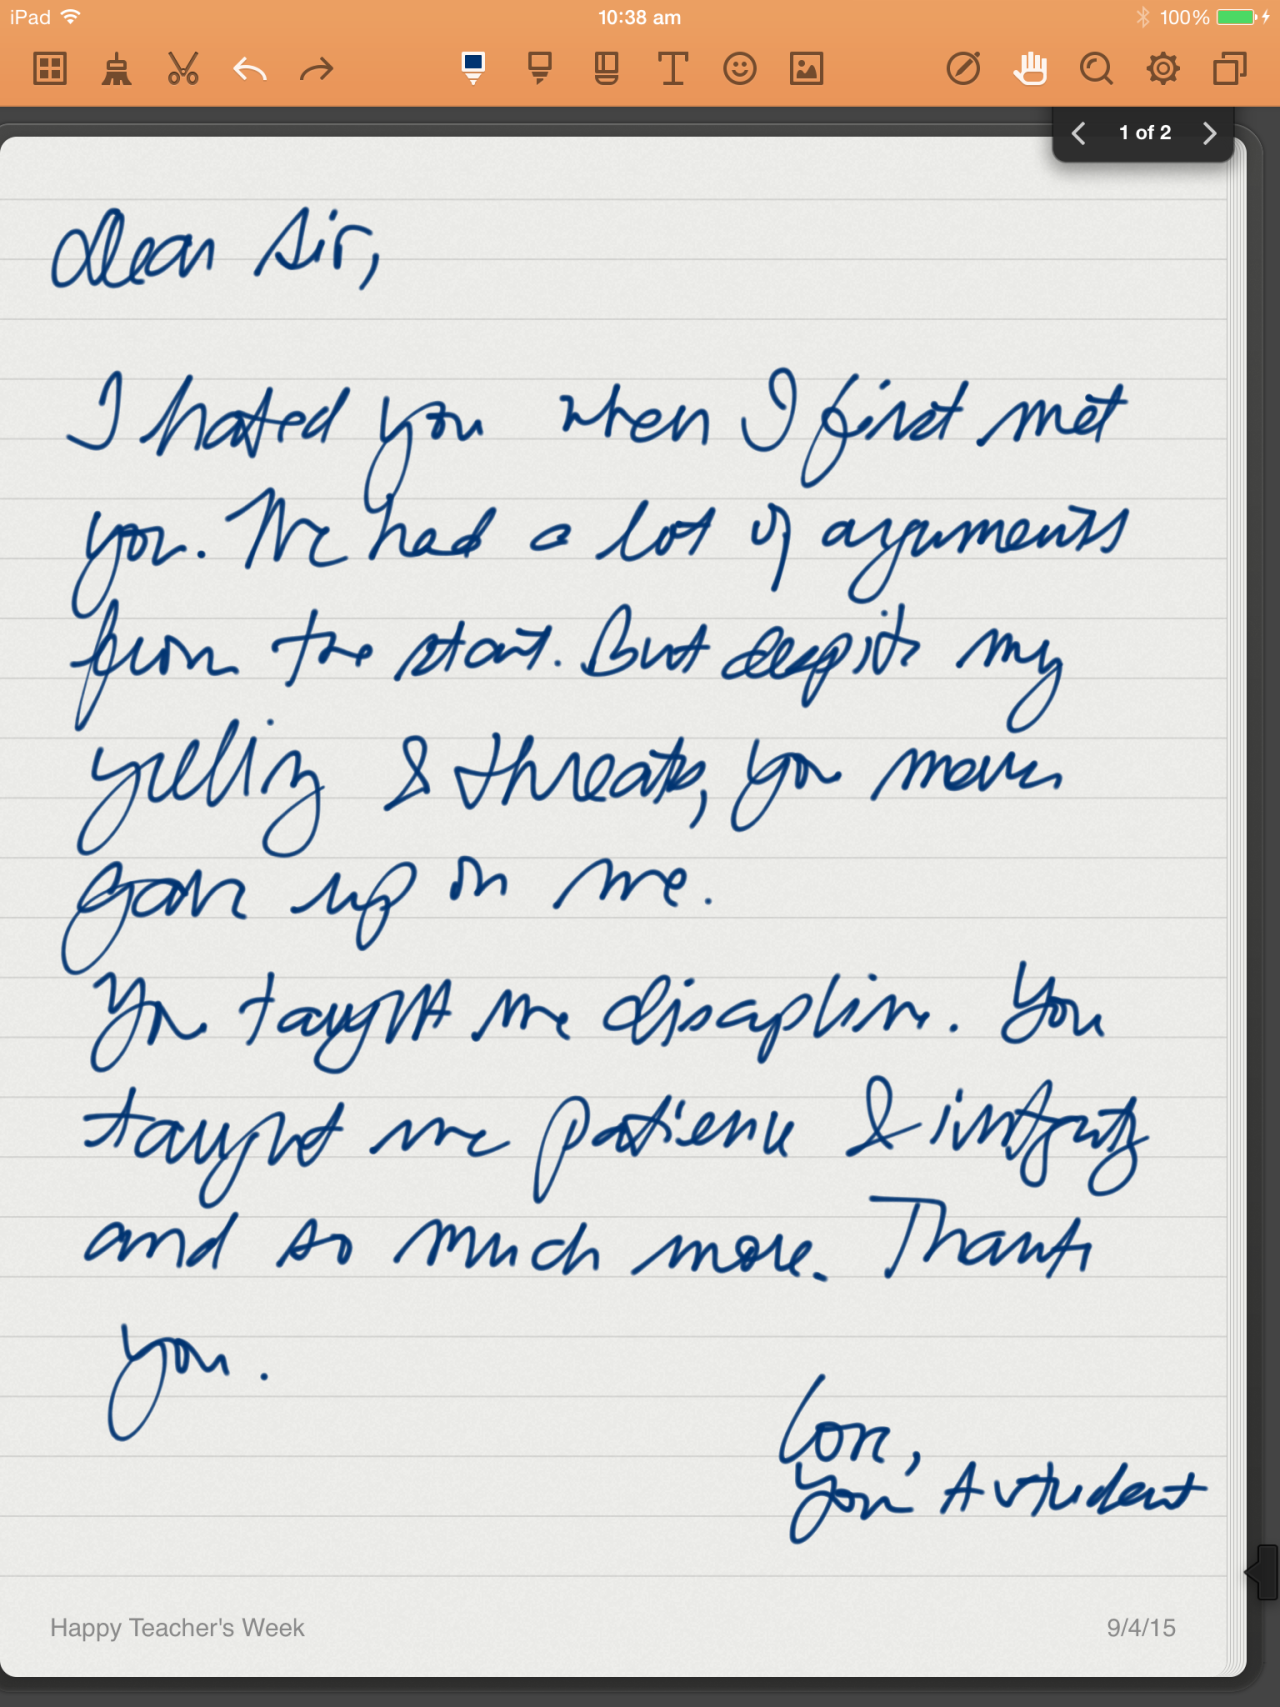 iPad 10:38 am 100%
1 of 2
Dear Sir,
I hated you when I first met
you. We had a lot of arguments
from the start. But despite my
yelling & threats, you never
gave up on me.
You taught me discipline. You
taught me patience & integrity
and so much more. Thank
you.
Love,
Your A student
Happy Teacher's Week 9/4/15